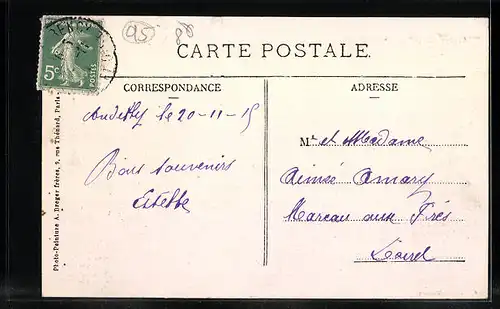 95
CARTE POSTALE.
5c
POSTES
CORRESPONDANCE
ADRESSE
Andelly le 20-11-15
Bons souvenirs
Mr et Madame
Aimée Amary
Mareau aux Prés
Loiret
Photo-Peinture A. Breger frères, 9, rue Thénard, Paris